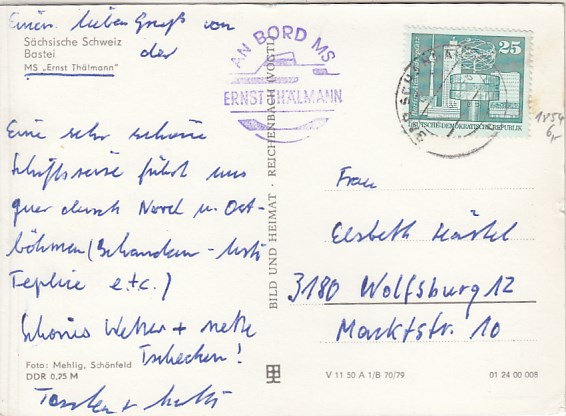 Einen lieben Gruß von
Sächsische Schweiz
Bastei
der
MS „Ernst Thälmann"
Eine sehr schöne
Schiffsreise führt uns
quer durch Nord u. Ost-
böhmen (Schandau -
Teplice e.t.c.)
Schönes Wetter + nette
Tschechen!
Foto: Mehlig, Schönfeld
DDR 0,25 M
Torsten +
BILD UND HEIMAT · REICHENBACH (VOGTL)
AN BORD MS
ERNST THÄLMANN
25
DEUTSCHE DEMOKRATISCHE REPUBLIK
BAD SCHANDAU
1854
6,-
Frau
Elsbeth Härtel
3180 Wolfsburg 12
Marktstr. 10
V 11 50 A 1/B 70/79
01 24 00 008